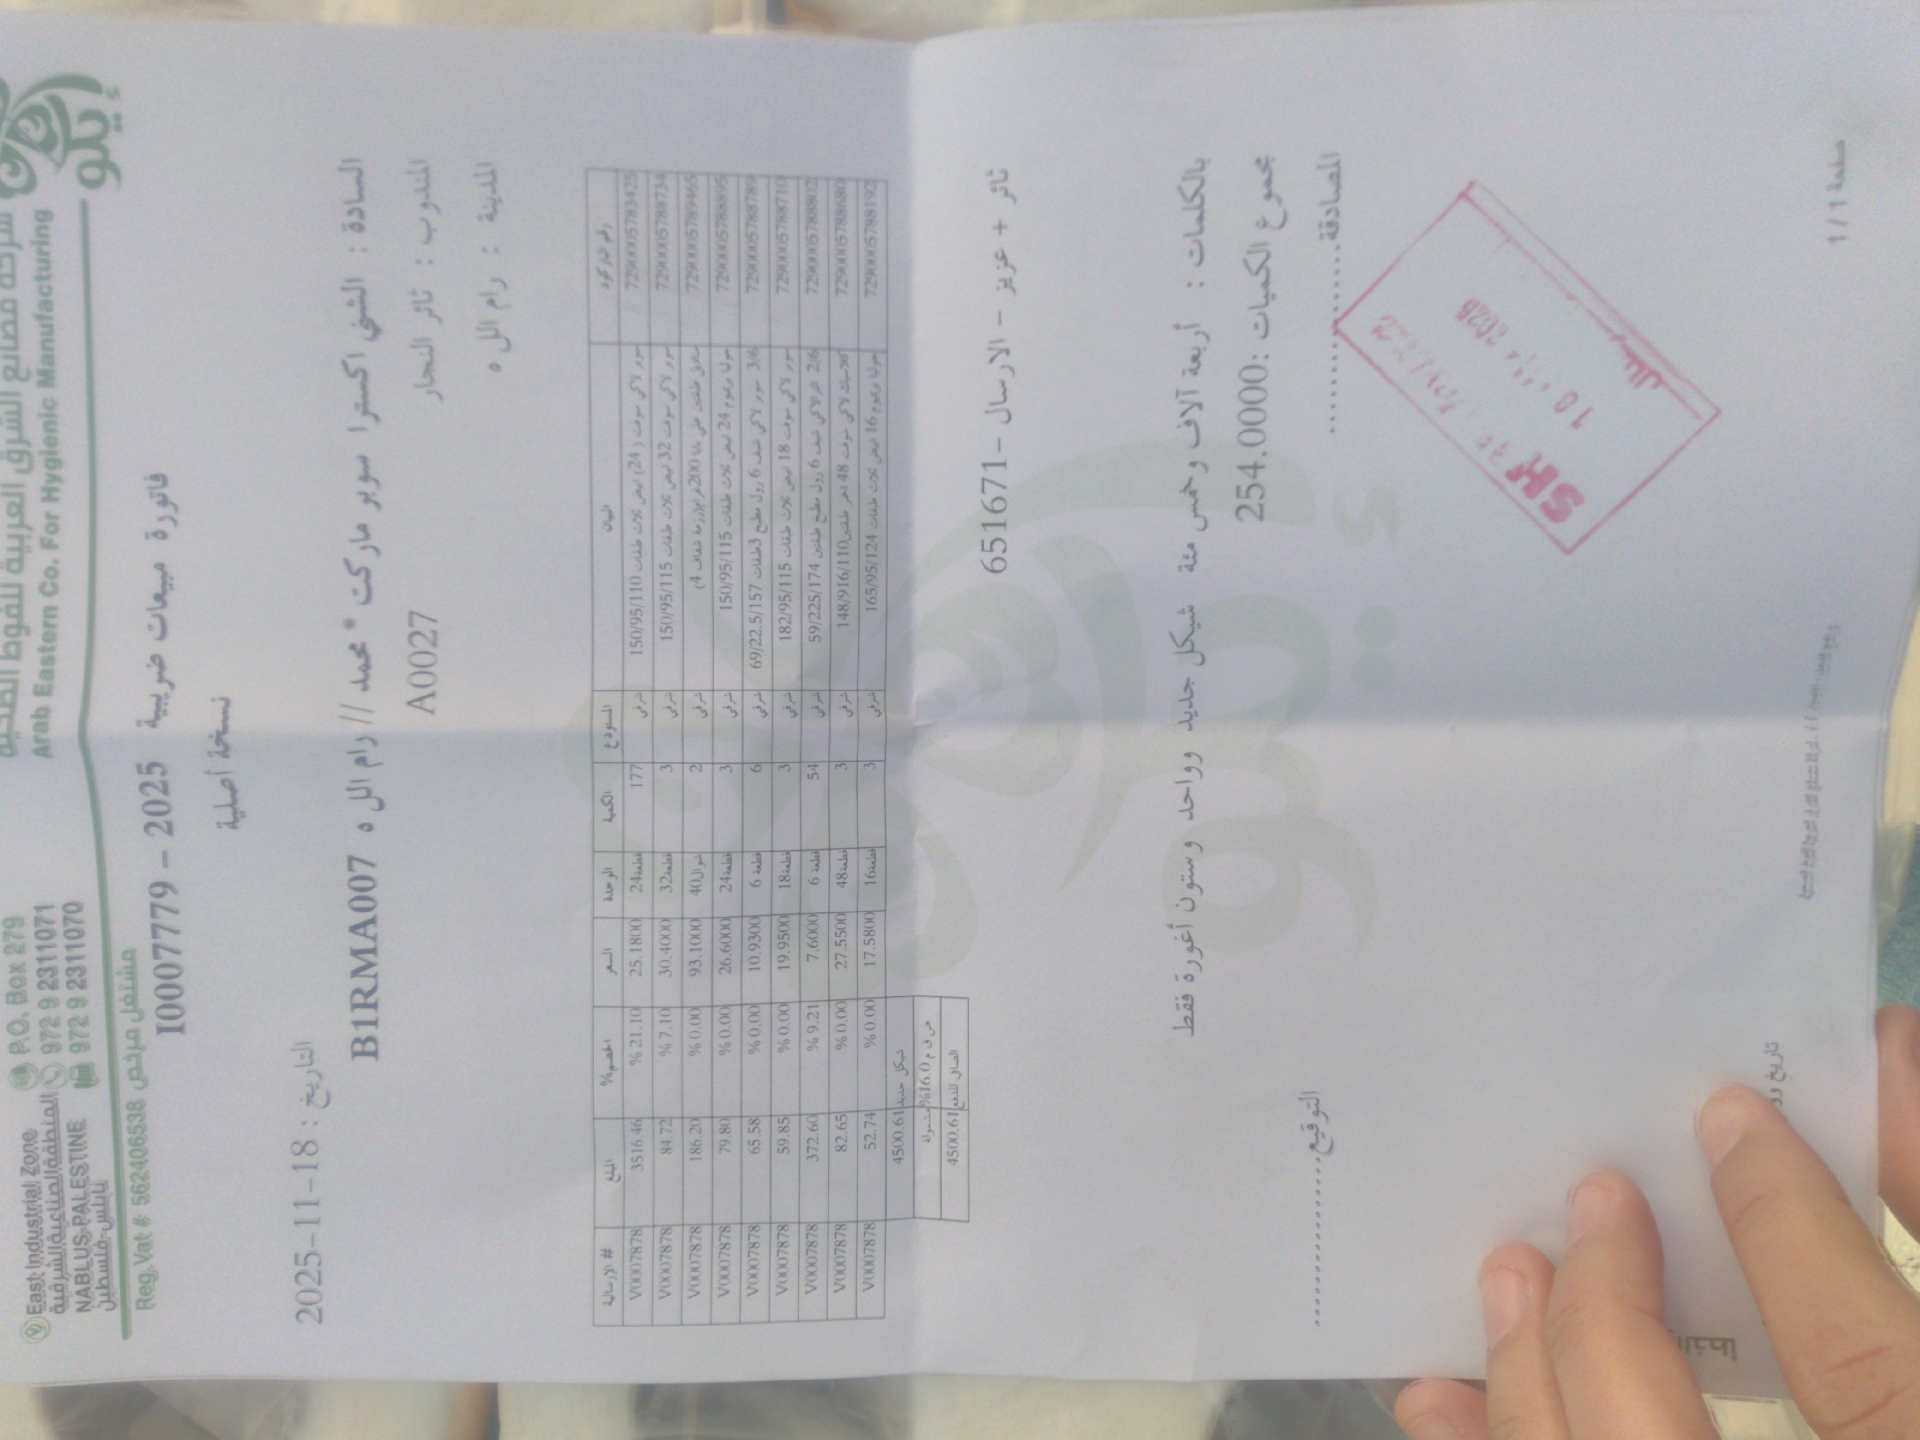 شركة مصانع الشرق العربية للفوط الصحية
Arab Eastern Co. For Hygienic Manufacturing
إيلكو
East Industrial Zone
المنطقة الصناعية الشرقية
NABLUS-PALESTINE
نابلس-فلسطين
P.O. Box 279
972 9 2311071
972 9 2311070
Reg. Vat # 562406538 مشتغل مرخص
فاتورة مبيعات ضريبية I0007779 - 2025
نسخة أصلية
التاريخ : 2025-11-18
السادة : الشني اكسترا سوبر ماركت * محمد // رام الل ه B1RMA007
المندوب : ثائر النجار A0027
المدينة : رام الل ه
رقم الباركود البيان المستودع الكمية الوحدة السعر الخصم% المبلغ # الارسالية
7290005783425 سوبر لاكي سوفت (24) ابيض ثلاث طبقات 150/95/110 شرقي 177 قطعة24 25.1800 % 21.10 3516.46 V0007878
7290005788734 سوبر لاكي سوفت 32 ابيض ثلاث طبقات 150/95/115 شرقي 3 قطعة32 30.4000 % 7.10 84.72 V0007878
7290005789465 شرقي 2 شوال40 93.1000 % 0.00 186.20 V0007878
7290005788895 24 ابيض ثلاث طبقات 150/95/115 شرقي 3 قطعة24 26.6000 % 0.00 79.80 V0007878
7290005788789 3/6 سوبر لاكي شيف 6 رول مطبخ 3طبقات 69/22.5/157 شرقي 6 قطعة 6 10.9300 % 0.00 65.58 V0007878
7290005788710 سوبر لاكي سوفت 18 ابيض ثلاث طبقات 182/95/115 شرقي 3 قطعة18 19.9500 % 0.00 59.85 V0007878
7290005788802 2/6 شيف 6 رول مطبخ طبقتين 59/225/174 شرقي 54 قطعة 6 7.6000 % 9.21 372.60 V0007878
7290005788680 لاكي سوفت 48 طبقتين 148/916/110 شرقي 3 قطعة48 27.5500 % 0.00 82.65 V0007878
7290005788192 16 ابيض ثلاث طبقات 165/95/124 شرقي 3 قطعة16 17.5800 % 0.00 52.74 V0007878
شيكل جديد 4500.61
ض ق م 16.0% مشمولة
الصافي للدفع 4500.61
ثائر + عزيز - الارسال - 651671
بالكلمات : أربعة آلاف وخمس مئة شيكل جديد وواحد وستون أغورة فقط
مجموع الكميات :254.0000
المصادقة..............
التوقيع..................
صفحة 1 / 1